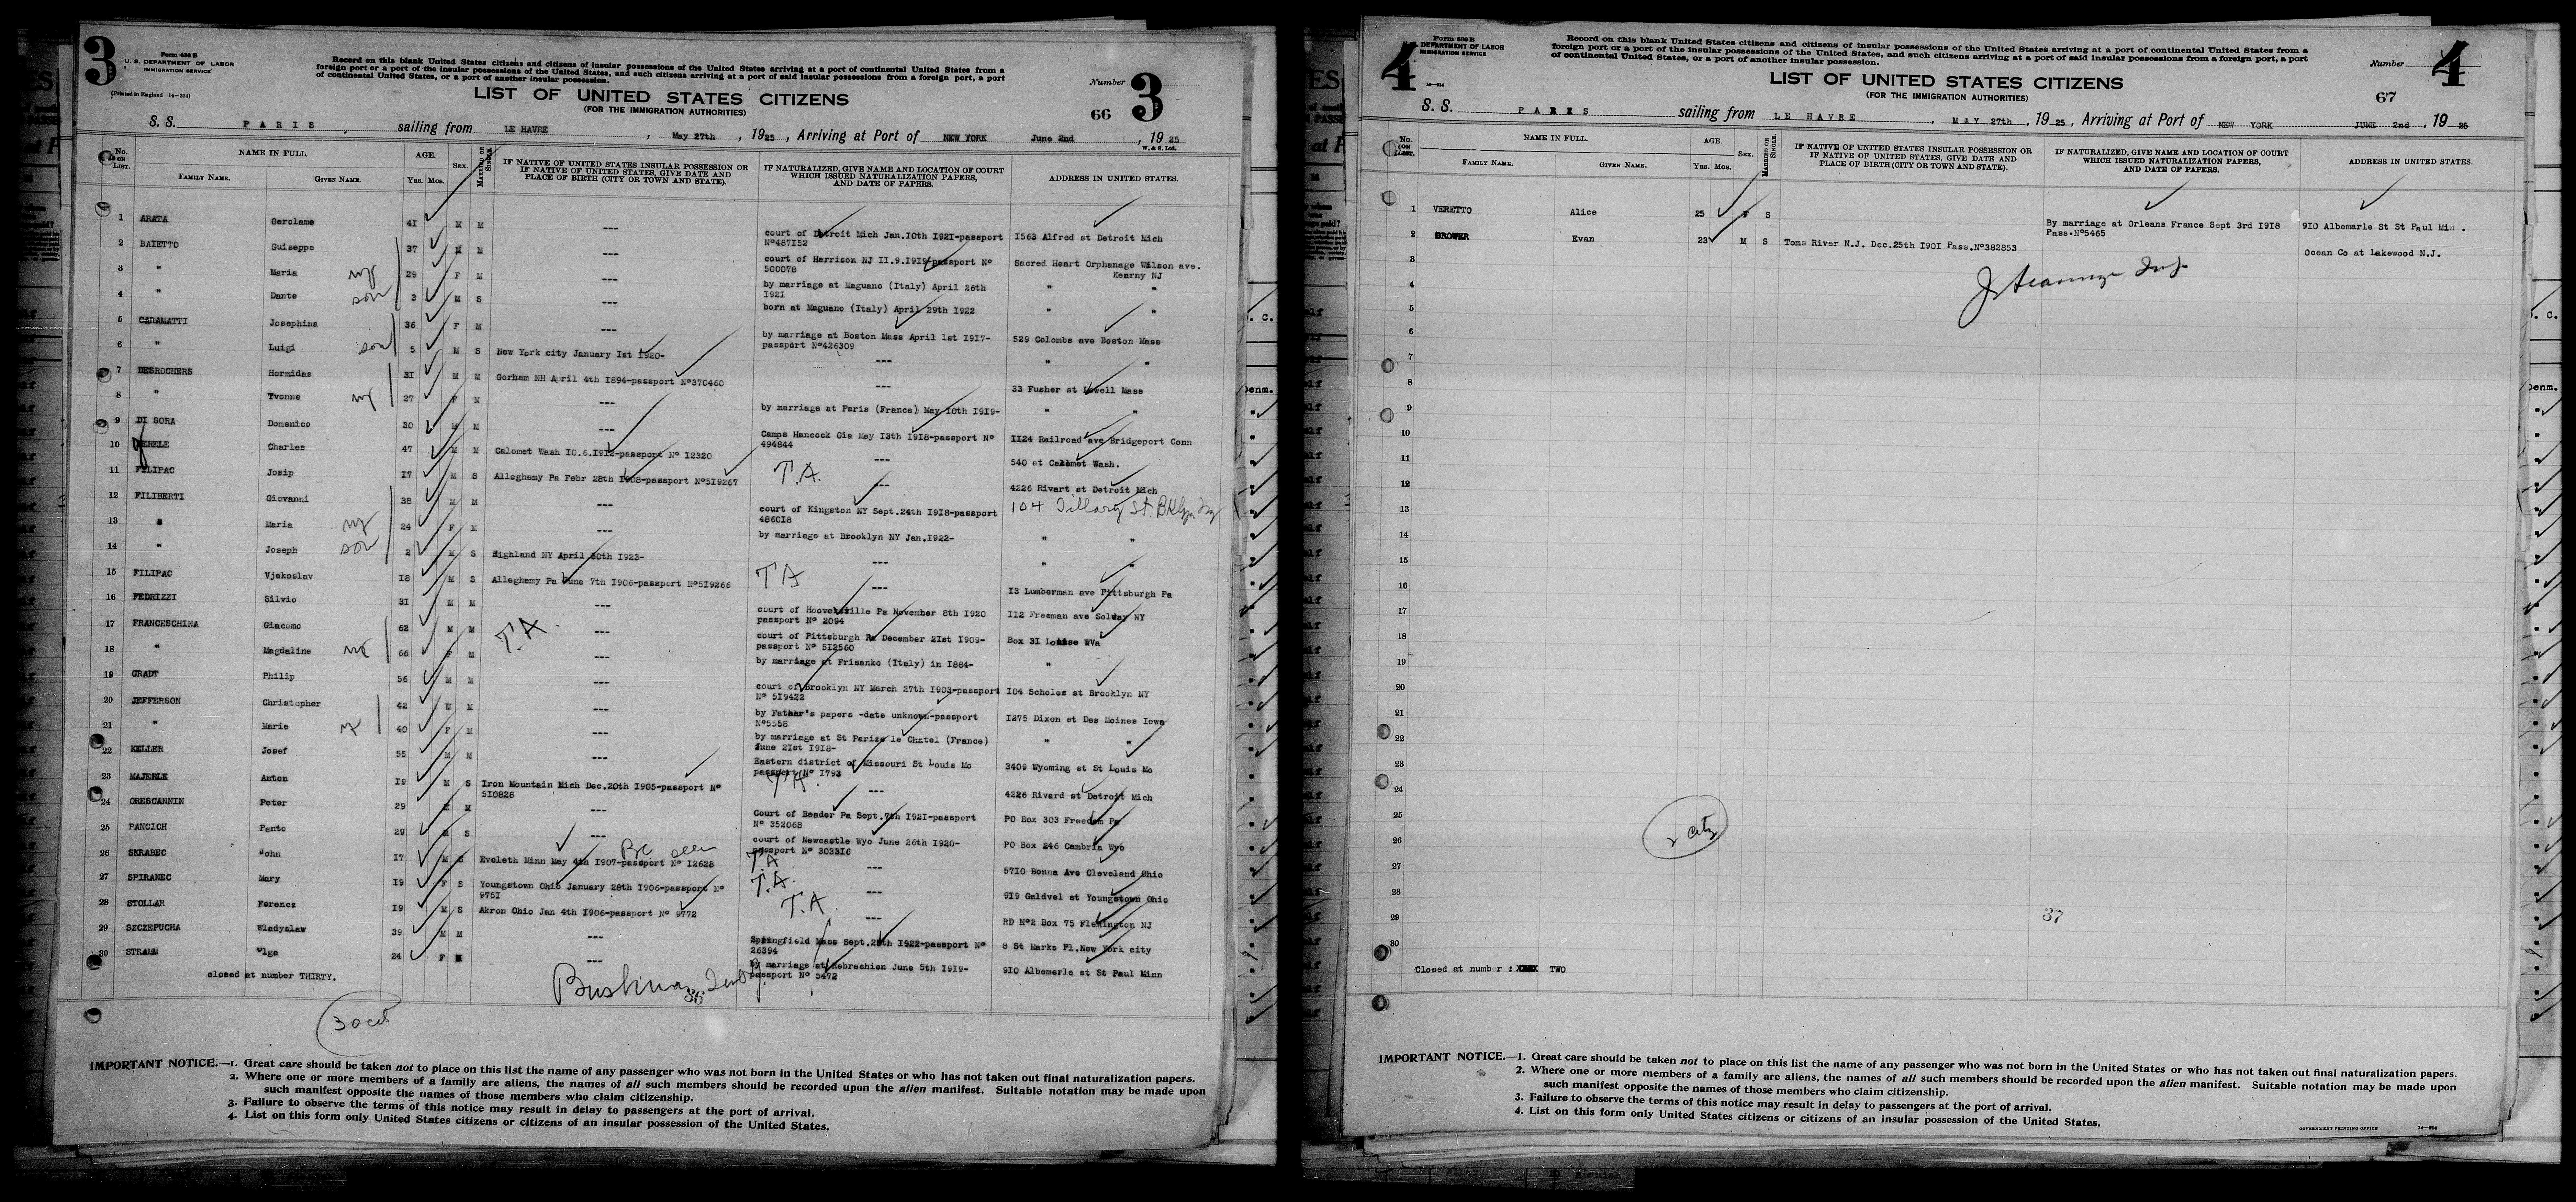 3
Form 630 B
U. S. DEPARTMENT OF LABOR
IMMIGRATION SERVICE
(Printed in England 14—214)
Record on this blank United States citizens and citizens of insular possessions of the United States arriving at a port of continental United States from a
foreign port or a port of the insular possessions of the United States, and such citizens arriving at a port of said insular possessions from a foreign port, a port
of continental United States, or a port of another insular possession.
LIST OF UNITED STATES CITIZENS
(FOR THE IMMIGRATION AUTHORITIES)
Number 3
66
S. S. PARIS, sailing from LE HAVRE, May 27th, 1925, Arriving at Port of NEW YORK June 2nd, 1925
W. & S. Ltd.
No. ON LIST. NAME IN FULL. FAMILY NAME. GIVEN NAME. AGE. Yrs. Mos. SEX. MARRIED OR SINGLE. IF NATIVE OF UNITED STATES INSULAR POSSESSION OR IF NATIVE OF UNITED STATES, GIVE DATE AND PLACE OF BIRTH (CITY OR TOWN AND STATE). IF NATURALIZED, GIVE NAME AND LOCATION OF COURT WHICH ISSUED NATURALIZATION PAPERS, AND DATE OF PAPERS. ADDRESS IN UNITED STATES.
1 ARATA Gerolamo 41 M M --- court of Detroit Mich Jan.10th 1921-passport N°487152 1563 Alfred st Detroit Mich
2 BAIETTO Guiseppe 37 M M --- court of Harrison NJ II.9.1919-passport N° 500078 Sacred Heart Orphanage Wilson ave. Kearny NJ
3 " Maria 29 F M --- by marriage at Maguano (Italy) April 26th 1921 " "
4 " Dante son 3 M S --- born at Maguano (Italy) April 29th 1922 " "
5 CARAMATTI Josephina 36 F M --- by marriage at Boston Mass April 1st 1917-passport N°426309 529 Colombs ave Boston Mass
6 " Luigi son 5 M S New York city January 1st 1920- --- " "
7 DESROCHERS Hormidas 31 M M Gorham NH April 4th 1894-passport N°370460 --- 33 Fusher st Lowell Mass
8 " Yvonne 27 F M --- by marriage at Paris (France) May 10th 1919- " "
9 DI SORA Domenico 30 M M --- Camps Hancock Gia May 13th 1918-passport N° 494844 1124 Railroad ave Bridgeport Conn
10 Charles 47 M M Calomet Wash 10.6.1912-passport N° 12320 --- 540 at Calomet Wash.
11 FILIPAC Josip 17 M S Alleghemy Pa Febr 28th 1908-passport N°519267 T.A. --- 4226 Rivart st Detroit Mich
12 FILIBERTI Giovanni 38 M M --- court of Kingston NY Sept.24th 1918-passport 486018 104 Tillary St. Bklyn
13 " Maria 24 F M --- by marriage at Brooklyn NY Jan.1922- " "
14 " Joseph son 2 M S Highland NY April 30th 1923- --- " "
15 FILIPAC Vjekoslav 18 M S Alleghemy Pa June 7th 1906-passport N°519266 TA --- 13 Lumberman ave Pittsburgh Pa
16 PEDRIZZI Silvio 31 M M --- court of Hooversville Pa November 8th 1920 passport N° 2094 112 Freeman ave Solvay NY
17 FRANCESCHINA Giacomo 62 M M T.A. --- court of Pittsburgh Pa December 21st 1909-passport N° 512560 Box 31 Louise WVa
18 " Magdaline 66 F M --- by marriage at Frisanko (Italy) in 1884- "
19 GRADT Philip 56 M M --- court of Brooklyn NY March 27th 1903-passport N° 519422 104 Scholes st Brooklyn NY
20 JEFFERSON Christopher 42 M M --- by Father's papers -date unknown-passport N°5558 1275 Dixon st Des Moines Iowa
21 " Marie 40 F M --- by marriage at St Parize le Chatel (France) June 21st 1918- " "
22 KELLER Josef 55 M M --- Eastern district of Missouri St Louis Mo passport N° 1793 3409 Wyoming st St Louis Mo
23 MAJERLE Anton 19 M S Iron Mountain Mich Dec.20th 1905-passport N° 510828 T.A. --- 4226 Rivard st Detroit Mich
24 ORESCANNIN Peter 29 M M --- Court of Beader Pa Sept.7th 1921-passport N° 352068 PO Box 303 Freedom Pa
25 PANCICH Panto 29 M S --- court of Newcastle Wyo June 26th 1920-passport N° 303316 PO Box 246 Cambria Wyo
26 SKRABEC John 17 M S Eveleth Minn May 4th 1907-passport N° 12628 T.A. --- 5710 Bonna Ave Cleveland Ohio
27 SPIRANEC Mary 19 F S Youngstown Ohio January 28th 1906-passport N° 9751 T.A. --- 919 Galdvel st Youngstown Ohio
28 STOLLAR Ferencz 19 M S Akron Ohio Jan 4th 1906-passport N° 9772 T.A. --- RD N°2 Box 75 Flemington NJ
29 SZCZEPUCHA Wladyslaw 39 M M --- Springfield Mass Sept.25th 1922-passport N° 26394 8 St Marks Pl.New York city
30 STRAMM Olga 24 F --- by marriage at Rebrechien June 5th 1919-passport N° 5472 910 Albemerle st St Paul Minn
closed at number THIRTY.
36
30 cit
IMPORTANT NOTICE.—1. Great care should be taken not to place on this list the name of any passenger who was not born in the United States or who has not taken out final naturalization papers.
2. Where one or more members of a family are aliens, the names of all such members should be recorded upon the alien manifest. Suitable notation may be made upon
such manifest opposite the names of those members who claim citizenship.
3. Failure to observe the terms of this notice may result in delay to passengers at the port of arrival.
4. List on this form only United States citizens or citizens of an insular possession of the United States.
4
Form 630 B
DEPARTMENT OF LABOR
IMMIGRATION SERVICE
14—214
Record on this blank United States citizens and citizens of insular possessions of the United States arriving at a port of continental United States from a
foreign port or a port of the insular possessions of the United States, and such citizens arriving at a port of said insular possessions from a foreign port, a port
of continental United States, or a port of another insular possession.
LIST OF UNITED STATES CITIZENS
(FOR THE IMMIGRATION AUTHORITIES)
Number 4
67
S. S. PARIS sailing from LE HAVRE, MAY 27th, 1925, Arriving at Port of NEW YORK JUNE 2nd, 1925
No. ON LIST. NAME IN FULL. FAMILY NAME. GIVEN NAME. AGE. Yrs. Mos. SEX. MARRIED OR SINGLE. IF NATIVE OF UNITED STATES INSULAR POSSESSION OR IF NATIVE OF UNITED STATES, GIVE DATE AND PLACE OF BIRTH (CITY OR TOWN AND STATE). IF NATURALIZED, GIVE NAME AND LOCATION OF COURT WHICH ISSUED NATURALIZATION PAPERS, AND DATE OF PAPERS. ADDRESS IN UNITED STATES.
1 VERETTO Alice 25 F S By marriage at Orleans France Sept 3rd 1918 Pass.N°5465 910 Albemarle St St Paul Min .
2 BROWER Evan 23 M S Toms River N.J. Dec.25th 1901 Pass.N°382853 Ocean Co at Lakewood N.J.
3
4
5
6
7
8
9
10
11
12
13
14
15
16
17
18
19
20
21
22
23
24
25
26
27
28
29
30
2 city
37
Closed at number : TWO
IMPORTANT NOTICE.—1. Great care should be taken not to place on this list the name of any passenger who was not born in the United States or who has not taken out final naturalization papers.
2. Where one or more members of a family are aliens, the names of all such members should be recorded upon the alien manifest. Suitable notation may be made upon
such manifest opposite the names of those members who claim citizenship.
3. Failure to observe the terms of this notice may result in delay to passengers at the port of arrival.
4. List on this form only United States citizens or citizens of an insular possession of the United States.
GOVERNMENT PRINTING OFFICE 14—214